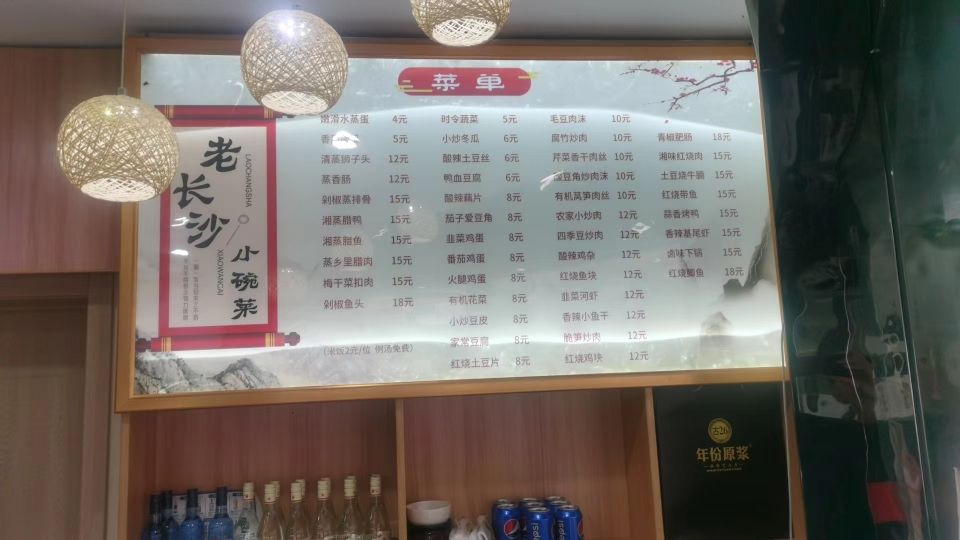 菜单
老长沙
LAOCHANGSHA
小碗菜
XIAOWANCAI
嫩滑水蒸蛋 4元
5元
清蒸狮子头 12元
蒸香肠 12元
剁椒蒸排骨 15元
湘蒸腊鸭 15元
湘蒸腊鱼 15元
蒸乡里腊肉 15元
梅干菜扣肉 15元
剁椒鱼头 18元
(米饭2元/位 例汤免费)
时令蔬菜 5元
小炒冬瓜 6元
酸辣土豆丝 6元
鸭血豆腐 6元
酸辣藕片 8元
茄子爱豆角 8元
韭菜鸡蛋 8元
番茄鸡蛋 8元
火腿鸡蛋 8元
有机花菜 8元
小炒豆皮 8元
家常豆腐 8元
红烧土豆片 8元
毛豆肉沫 10元
腐竹炒肉 10元
芹菜香干肉丝 10元
酸豆角炒肉沫 10元
有机莴笋肉丝 10元
农家小炒肉 12元
四季豆炒肉 12元
酸辣鸡杂 12元
红烧鱼块 12元
韭菜河虾 12元
香辣小鱼干 12元
脆笋炒肉 12元
红烧鸡块 12元
青椒肥肠 18元
湘味红烧肉 15元
土豆烧牛腩 15元
红烧带鱼 15元
蒜香烤鸭 15元
香辣基尾虾 15元
卤味下锅 15元
红烧鲫鱼 18元
古26
年份原浆
pepsi